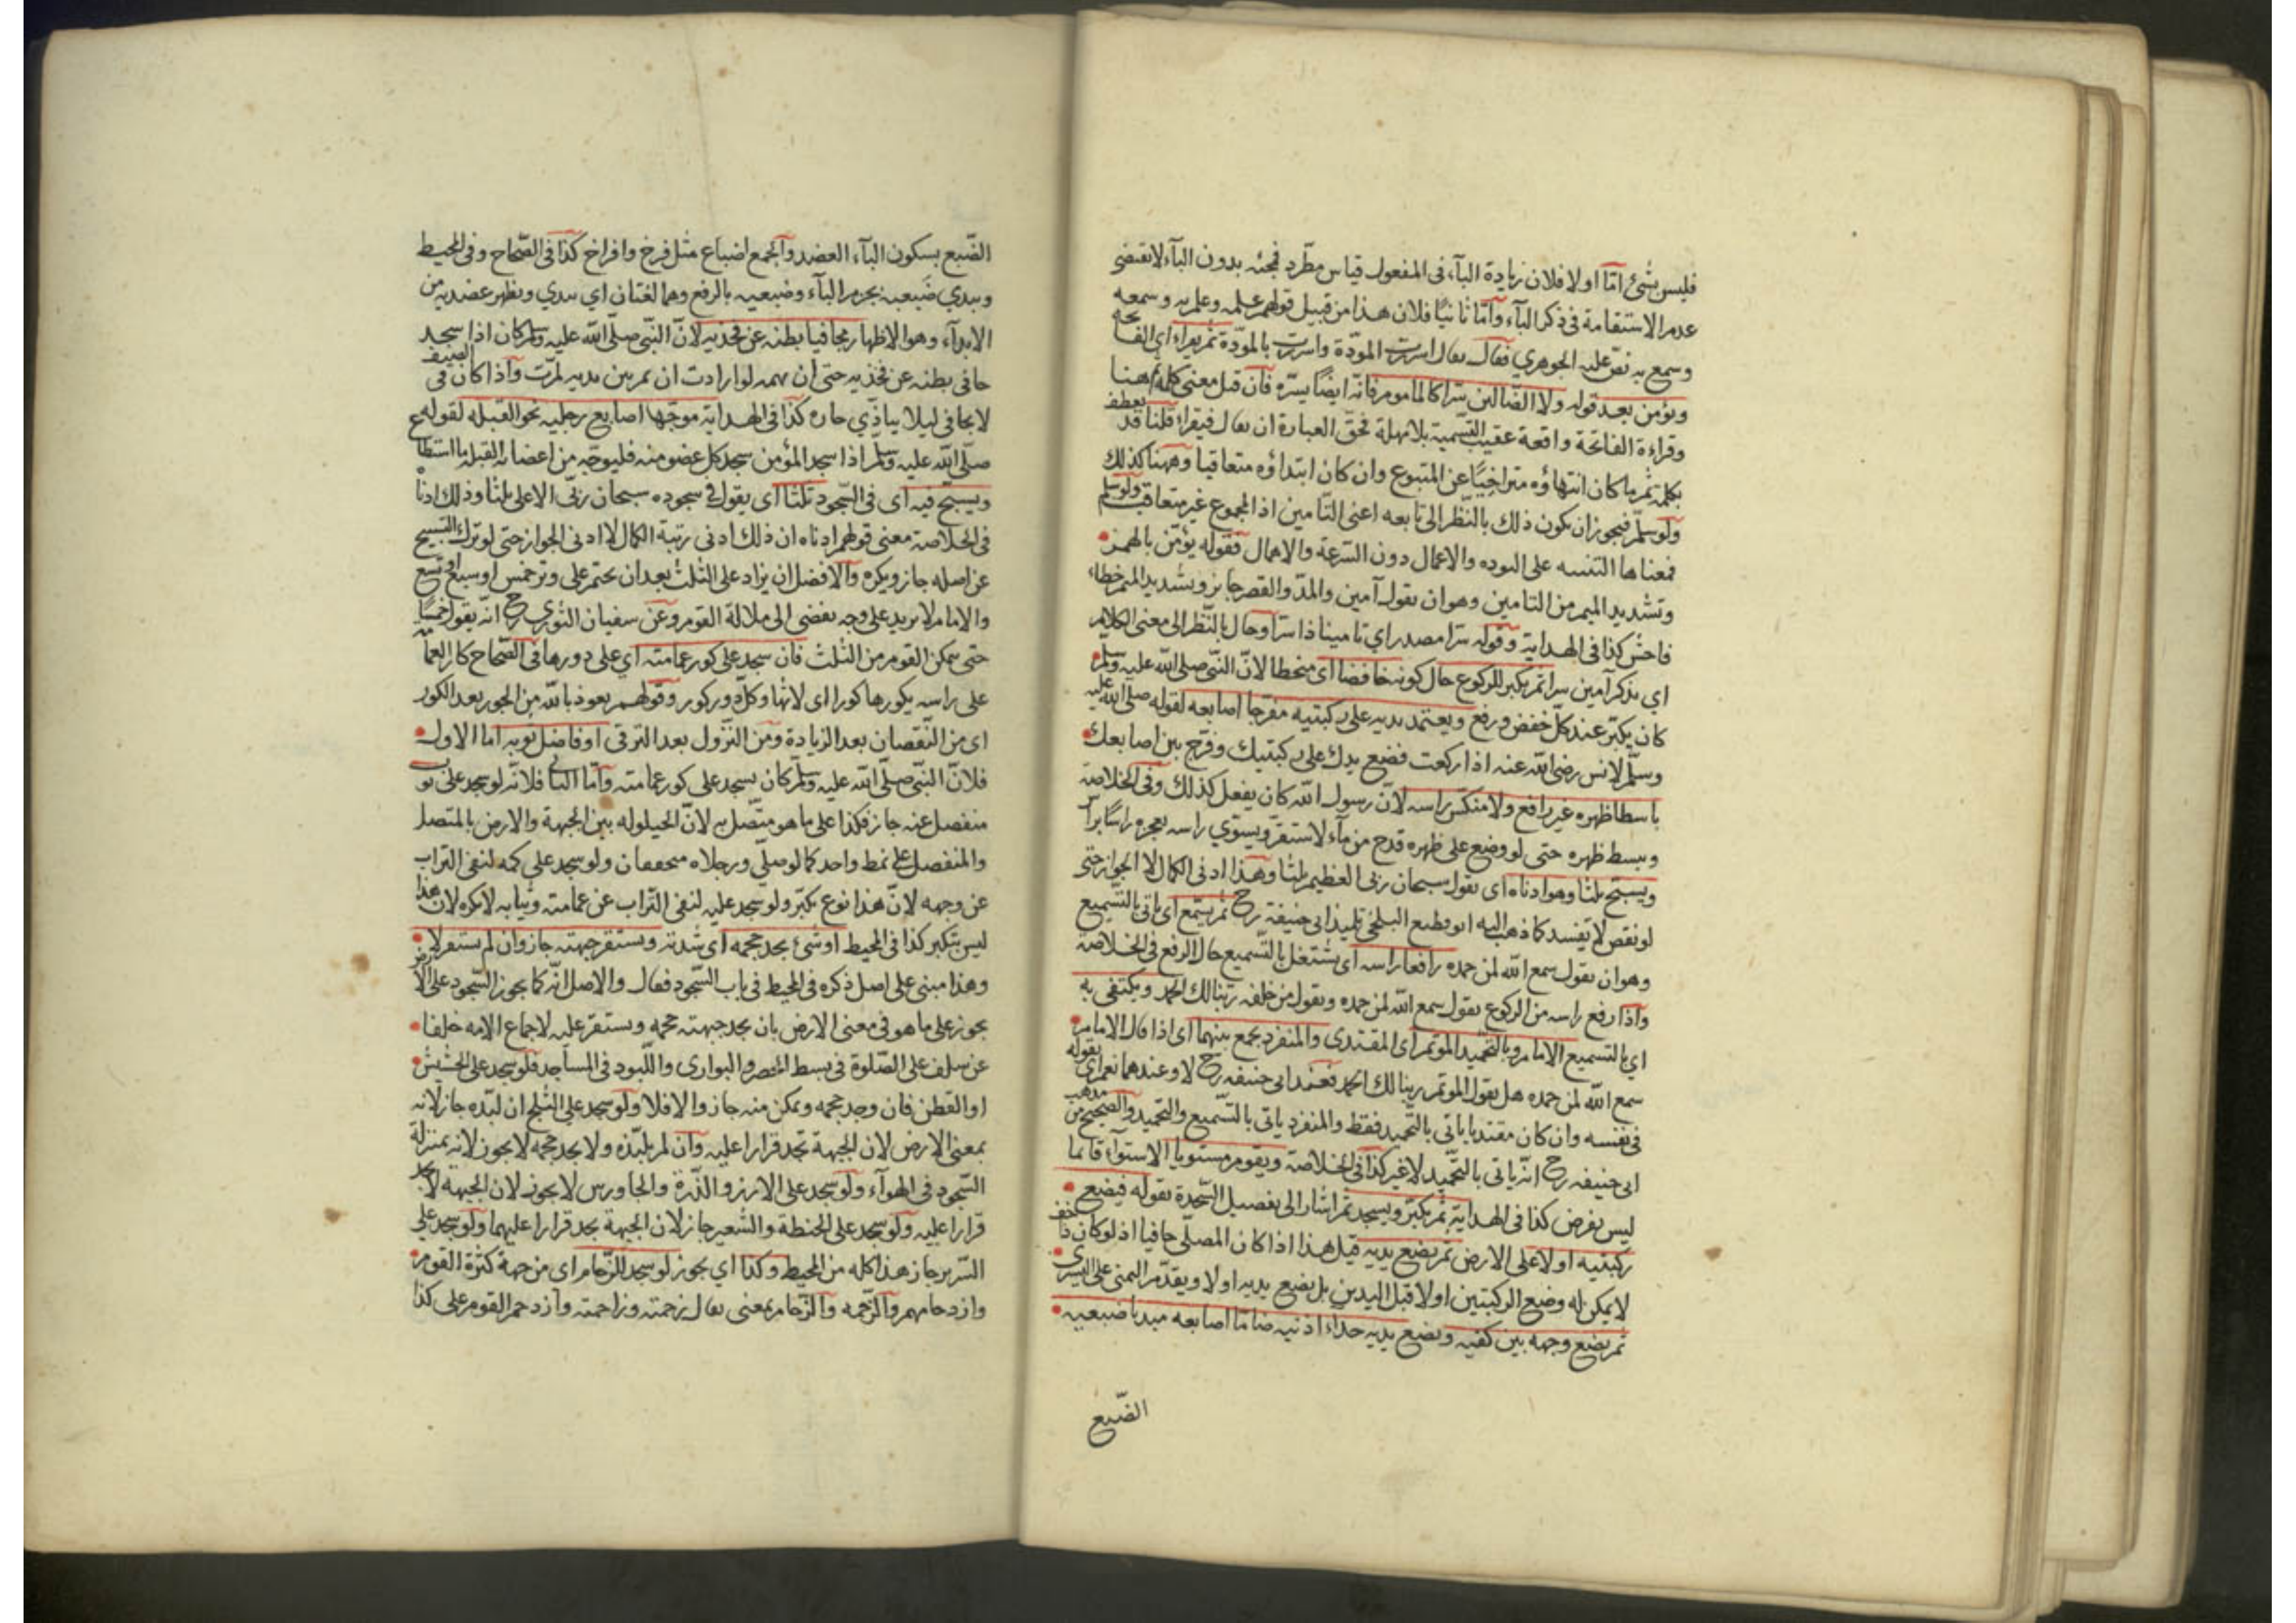 فليس بشئ امّا اولا فلان زيادة البآء فى المفعول قياس مطّرد فجئه بدون البآء لا تقتضى
عدم الاستقامة فى ذكر البآء وآمّا ثانيًا فلان هذا من قبيل قولهم علمه وعلم به وسمعه
وسمع به نصّ عليه الجوهري فقال يقال اسررت المودّة واسررت بالمودّة ثم يقراء اى الفاتحه
ويؤمن بعد قوله ولا الضّالين سرّا كالماموم فانّه ايضًا يسرّه فآن قيل معنى كلمة هنا
وقراءة الفاتحة واقعة عقيب التّسمية بلا مهلة فحقّ العبارة ان يقال فيقراء قلنا قد يعطف
بكلمة ثم ما كان انتهاؤه متراخيًا عن المتبوع وان كان ابتداؤه متعاقبا وههنا كذلك
ولو سلّم فيجوز ان يكون ذلك بالنّظر الى تابعه اعنى التّامين اذ المجموع غير متعاقب ولو سلم
فمعناها التنبيه على التوده والاعمال دون السّرعة والاهمال فقوله يؤمّن بالهمز
وتشديد الميم من التامين وهو ان يقول آمين والمدّ والقصر جايز وتشديد الميم خطاء
فاحش كذا فى الهداية وقوله سرّا مصدر اي تامينا ذا سرّ او حال بالنّظر الى معنى الكلام
اي يذكر آمين سرا ثم يكبر للركوع حال كونه خافضا اى منحطا لانّ النّبى صلى الله عليه وسلم
كان يكبّر عند كلّ خفض ورفع ويعتمد بيديه على ركبتيه مفرّجا اصابعه لقوله صلى الله عليه
وسلّم لانس رضى الله عنه اذا ركعت فضع يدك على ركبتيك وفرّج بين اصابعك
باسطا ظهره غير رافع ولا منكّس راسه لانّ رسول الله كان يفعل كذلك وفى الخلاصة
ويبسط ظهره حتى لو وضع على ظهره قدح من مآء لاستقرّ ويستوي راسه بعجزه راسًا برا
ويسبّح ثلثا وهو ادناه اى يقول سبحان ربّى العظيم ثلثا وهذا ادنى الكمال لا الجواز حتى
لو نقص لا تفسد كما ذهب اليه ابو مطيع البلخى تلميذ ابى حنيفة رح ثم يسمّع اى ياتى بالتّسميع
وهو ان يقول سمع الله لمن حمده رافعا راسه اى يشتغل بالتّسميع حال الرفع فى الخلاصة
وآذا رفع راسه من الركوع يقول سمع الله لمن حمده ويقول من خلفه ربّنا لك الحمد ويكتفى به
اي بالتسميع الامام وبالتحميد الموتم اى المقتدى والمنفرد يجمع بينهما اى اذا قال الامام
سمع الله لمن حمده هل يقول الموتم ربنا لك الحمد فعند ابى حنيفه رح لا وعندهما نعم اى يقوله
فى نفسه وان كان مقتديا ياتى بالتّحميد فقط والمنفرد ياتى بالتّسميع والتحميد والصّحيح من مذهب
ابى حنيفه رح انّه ياتى بالتّحميد لا غير كذا فى الخلاصة ويقوم مستويا الاستوآء قائما
ليس بفرض كذا فى الهداية ثم يكبّر ويسجد ثم اشار الى تفصيل السّجدة بقوله فيضع
ركبتيه اولا على الارض ثم يضع يديه قيل هذا اذا كان المصلّى حافيا اذ لو كان ذا خف
لا يمكن له وضع الركبتين اولا قبل اليدين بل يضع يديه اولا ويقدّم اليمنى على اليسرى
ثم يضع وجهه بين كفيه ويضع يديه حذاء اذنيه ضامّا اصابعه مبديا ضبعيه
الضّبع
الضّبع بسكون البآء العضد وآلجمع اضباع مثل فرخ وافراخ كذا فى الصّحاح وفى المحيط
ويبدي ضَبعيه بجزم البآء وضبعيه بالرفع وهما لغتان اي يبدي ويظهر عضديه من
الابدآء وهو الاظهار مجافيا بطنه عن فخذيه لانّ النّبى صلّى الله عليه وسلم كان اذا سجد
جافى بطنه عن فخذيه حتى ان بهمه لو ارادت ان تمر بين يديه لمرّت وآذا كان فى الصف
لا يجافى ليلا يباذّي جاره كذا فى الهداية موجّها اصابع رجليه نحو القبله لقوله ع
صلّى الله عليه وسلّم اذا سجد المؤمن سجد كل عضو منه فليوجّه من اعضائه القبله ما استطا
ويسبّح فيه اى فى السّجود ثلثا اى يقول فى سجوده سبحان ربّى الاعلى ثلثا وذلك ادناه
فى الخلاصة معنى قولهم ادناه ان ذلك ادنى رتبة الكمال لا ادنى الجواز حتى لو ترك التسبيح
عن اصله جاز ويكره وآلافضل ان يزاد على الثلث بعد ان يختم على وتر خمس او سبع او تسع
والامام لا يزيد على وجه يفضى الى ملالة القوم وعن سفيان الثّورى رح انّه يقول خمسًا
حتى يتمكن القوم من الثلث فان سجد على كور عمامته اي على دورها فى الصّحاح كار العمامة
على راسه يكورها كورا اى لاثها وكلّ دور كور وقولهم يعوذ بالله من الحور بعد الكور
اى من النّقصان بعد الزيادة ومن النّزول بعد الترقى او فاضل ثوبه اما الاول
فلانّ النّبى صلّى الله عليه وسلّم كان يسجد على كور عمامته وآمّا الثانى فلانّه لو سجد على ثوب
منفصل عنه جاز فكذا على ما هو متّصل به لانّ الحيلوله بين الجبهة والارض بالمتصل
والمنفصل على نمط واحد كما لو صلّى ورجلاه مخففان ولو سجد على كمه لنفى التراب
عن وجهه لانّ هذا نوع تكبّر ولو سجد عليه لنفى التّراب عن عمامته وثيابه لا يكره لان هذا
ليس بتكبر كذا فى المحيط او شئ يجد حجمه اى شدته ويستقر جبهته جاز وان لم يستقر لا
وهذا مبنى على اصل ذكره فى المحيط فى باب السّجود فقال والاصل انّه كما يجوز السّجود على الارض
يجوز على ما هو فى معنى الارض بان يجد جبهته حجمه ويستقرّ عليه لاجماع الامه خلفا
عن سلف على الصّلوة فى بسط الحصر والبوارى واللّبود فى المساجد فلو سجد على الحشيش
او القطن فان وجد حجمه وتمكن منه جاز والا فلا ولو سجد على الثلج ان لبّده جاز لانه
بمعنى الارض لان الجبهة تجد قرارا عليه وآن لم يلبّده ولا يجد حجمه لا يجوز لانه بمنزلة
السّجود فى الهوآء ولو سجد على الارز والذّرة والجاورس لا يجوز لان الجبهة لا تجد
قرارا عليه ولو سجد على الحنطة والشّعير جاز لان الجبهة تجد قرارا عليهما ولو سجد على
السّرير جاز هذا كله من المحيط وكذا اي يجوز لو سجد للزّحام اى من جهة كثرة القوم
وازدحامهم والزّحمه والزّحام بمعنى يقال زحمته وزاحمته وآزدحم القوم على كذا